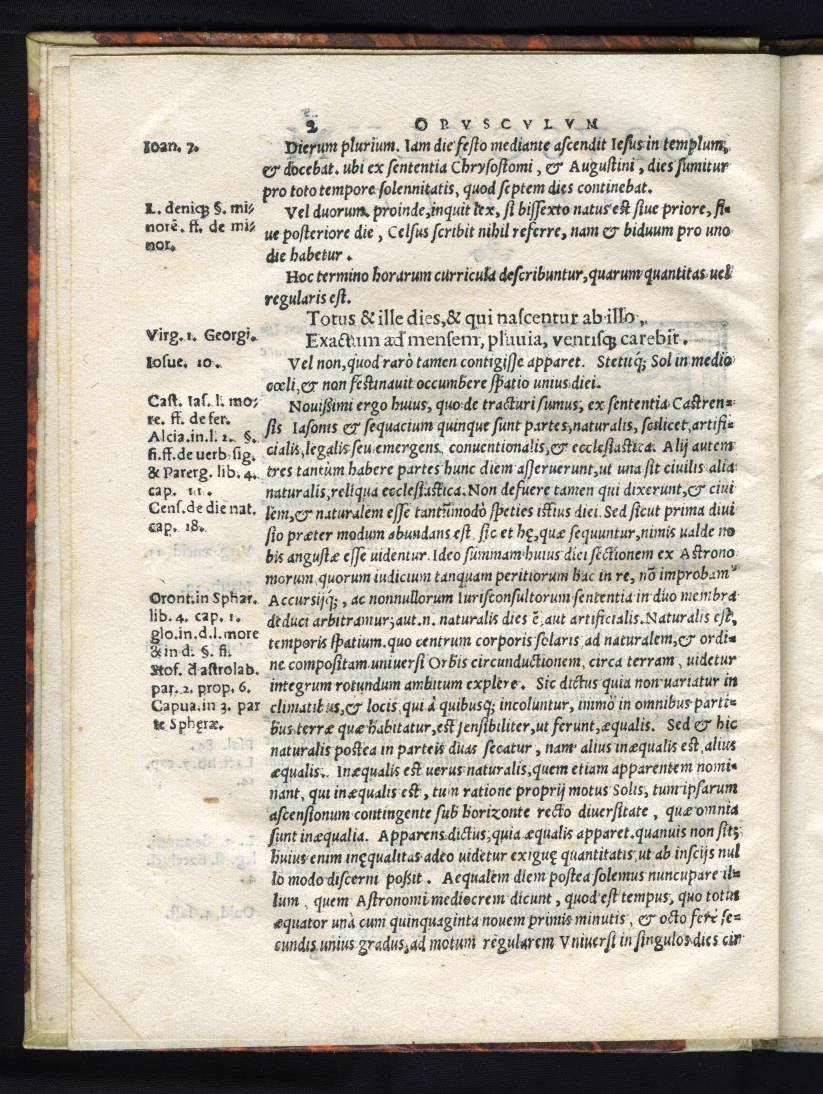 2 OPVSCVLVM
Ioan. 7.
Dierum plurium. Iam die festo mediante ascendit Iesus in templum,
& docebat. ubi ex sententia Chrysostomi, & Augustini, dies sumitur
pro toto tempore solennitatis, quod septem dies continebat.
L. deniq; §. mi=
norē. ff. de mi=
nor.
Vel duorum. proinde, inquit lex, si bissexto natus est siue priore, si=
ue posteriore die, Celsus scribit nihil referre, nam & biduum pro uno
die habetur.
Hoc termino horarum curricula describuntur, quarum quantitas uel
regularis est.
Virg. 1. Georgi.
Totus & ille dies, & qui nascentur ab illo,
Exactum ad mensem, pluuia, ventisq; carebit.
Iosue. 10.
Vel non, quod rarò tamen contigisse apparet. Stetitq́; Sol in medio
cœli, & non festinauit occumbere spatio unius diei.
Cast. Ias. l. mo=
re. ff. de fer.
Alcia. in. l. 2. §.
fi. ff. de uerb. sig.
& Parerg. lib. 4.
cap. 11.
Cens. de die nat.
cap. 18.
Nouissimi ergo huius, quo de tracturi sumus, ex sententia Castren=
sis Iasonis & sequacium quinque sunt partes, naturalis, scilicet, artifi=
cialis, legalis seu emergens, conuentionalis, & ecclesiastica. Alij autem
tres tantùm habere partes hunc diem asseruerunt, ut una sit ciuilis alia
naturalis, reliqua ecclesiastica. Non defuere tamen qui dixerunt, & ciui
lem, & naturalem esse tantummodò species istius diei. Sed sicut prima diui
sio præter modum abundans est, sic et hę, quæ sequuntur, nimis ualde no
bis angustæ esse uidentur. Ideo summam huius diei sectionem ex Astrono
morum, quorum iudicium tanquam peritiorum hac in re, nō improbam⁹
Oront. in Sphær.
lib. 4. cap. 1.
glo. in. d. l. more
& in d. §. fi.
Stof. d astrolab.
par. 2. prop. 6.
Capua. in 3. par
te Spheræ.
Accursijq́;, ac nonnullorum Iurisconsultorum sententia in duo membra
deduci arbitramur; aut. n. naturalis dies ē, aut artificialis. Naturalis est,
temporis spatium. quo centrum corporis solaris ad naturalem, & ordi=
ne compositam uniuersi Orbis circunductionem, circa terram, uidetur
integrum rotundum ambitum explere. Sic dictus quia non uariatur in
climatibus, & locis, qui à quibusq; incoluntur, immò in omnibus parti=
bus terræ quæ habitatur, est sensibiliter, ut ferunt, æqualis. Sed & hic
naturalis postea in parteis duas secatur, nam alius inæqualis est, alius
æqualis. Inæqualis est uerus naturalis, quem etiam apparentem nomi=
nant, qui inæqualis est, tum ratione proprij motus Solis, tum ipsarum
ascensionum contingente sub horizonte recto diuersitate, quæ omnia
sunt inæqualia. Apparens dictus, quia æqualis apparet. quanuis non sit;
huius enim inęqualitas adeo uidetur exiguę quantitatis, ut ab inscijs nul
lo modo discerni possit. Aequalem diem postea solemus nuncupare il=
lum, quem Astronomi mediocrem dicunt, quod est tempus, quo totus
æquator unà cum quinquaginta nouem primis minutis, & octo ferè se=
cundis unius gradus, ad motum regularem Vniuersi in singulos dies cir